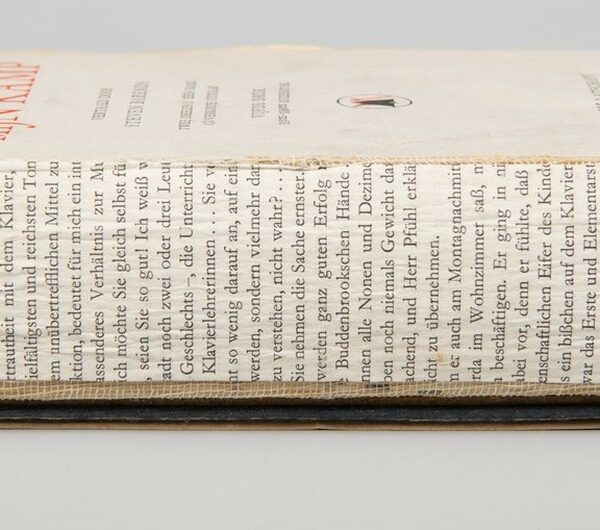 MIJN KAMP
VERTAALD DOOR
STEVEN BARENDS
VIJFDE DRUK
trautheit mit dem Klavier,
ielfältigsten und reichsten Ton
em unübertrefflichen Mittel zu
ktion, bedeutet für mich ein int
assenderes Verhältnis zur Mu
ich möchte Sie gleich selbst fü
, seien Sie so gut! Ich weiß w
adt noch zwei oder drei Leut
Geschlechts –, die Unterricht
Klavierlehrerinnen... Sie
nt so wenig darauf an, auf ein
werden, sondern vielmehr dar
zu verstehen, nicht wahr?...
Sie nehmen die Sache ernster,
werden ganz guten Erfolg
e Buddenbrookschen Hände
nnen alle Nonen und Dezime
ben noch niemals Gewicht dar
achend, und Herr Pfühl erklä
icht zu übernehmen.
m er auch am Montagnachmitt
rda im Wohnzimmer saß, n
u beschäftigen. Er ging in ni
abei vor, denn er fühlte, daß
enschaftlichen Eifer des Kinde
s ein bißchen auf dem Klavier
war das Erste und Elementarst